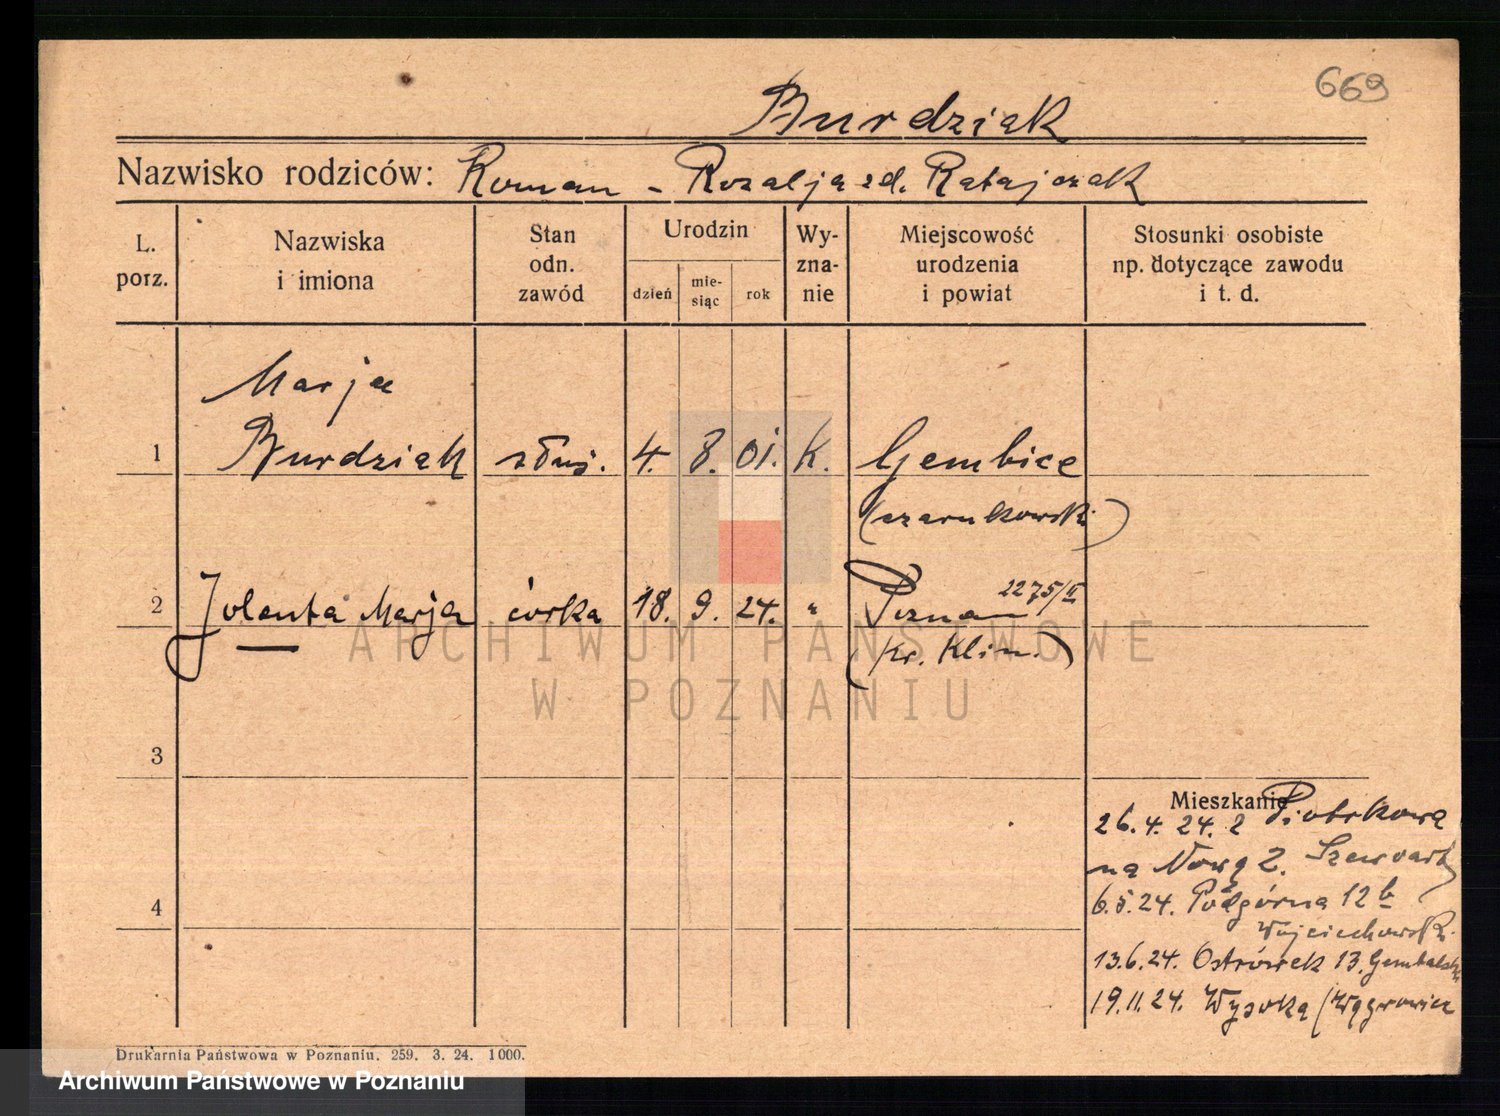 669
Burdziak
Nazwisko rodziców: Roman - Rozalja zd. Ratajczak
L. porz.
Nazwiska i imiona
Stan odn. zawód
Urodzin
dzień
mie-siąc
rok
Wy-zna-nie
Miejscowość urodzenia i powiat
Stosunki osobiste np. dotyczące zawodu i t. d.
Marja
1 Burdziak służ. 4. 8. 01. K. Gembice
(czarnkowski)
2 Jolenta Marja córka 18. 9. 24. " Poznań 2275/II
(kr. Klin.)
3
Mieszkanie
26. 4. 24. z Piotrkowa
na Nową 2. Szewvart
4
6.5.24. Podgórna 12 b
Wojciechowski
13.6.24. Ostrówek 13.
19.11.24. Wysoka (Wągrowiec
Drukarnia Państwowa w Poznaniu. 259. 3. 24. 1000.
ARCHIWUM PAŃSTWOWE
W POZNANIU
Archiwum Państwowe w Poznaniu